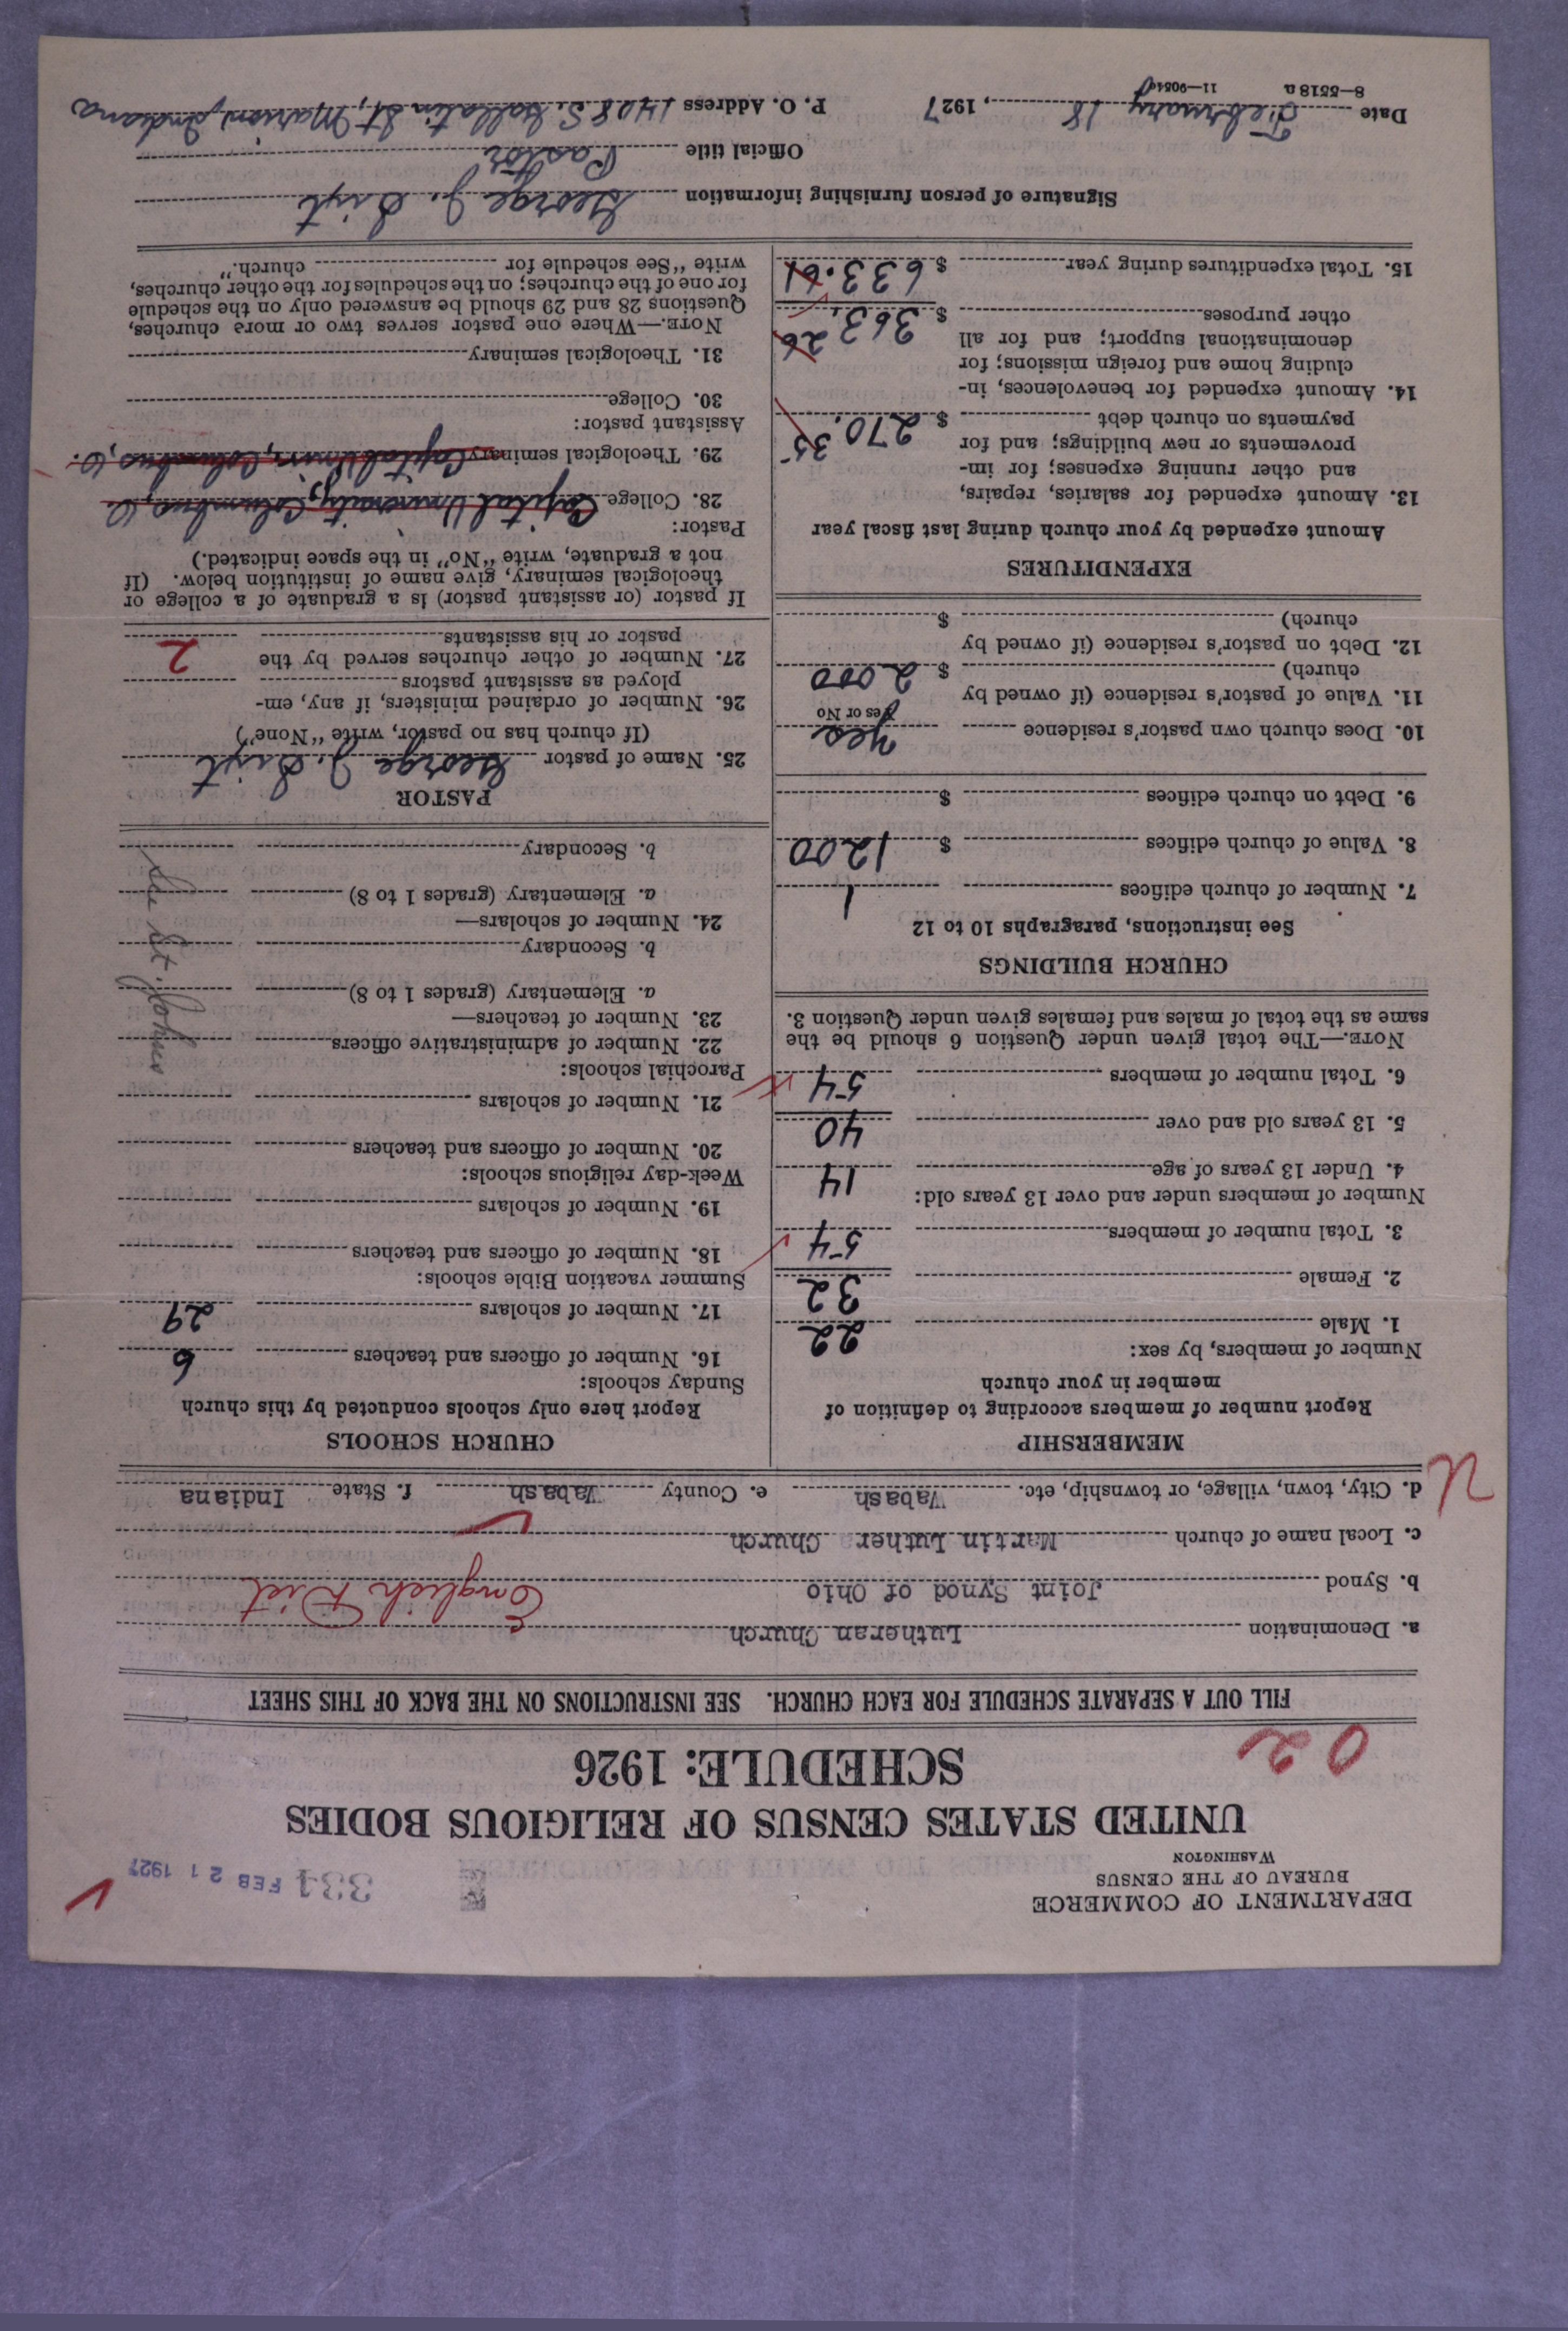 DEPARTMENT OF COMMERCE
BUREAU OF THE CENSUS
WASHINGTON
334 FEB 21 1927
UNITED STATES CENSUS OF RELIGIOUS BODIES
SCHEDULE: 1926
02
FILL OUT A SEPARATE SCHEDULE FOR EACH CHURCH. SEE INSTRUCTIONS ON THE BACK OF THIS SHEET
a. Denomination Lutheran Church
b. Synod Joint Synod of Ohio English Dist
c. Local name of church Martin Luther Church
d. City, town, village, or township, etc. Wabash e. County Wabash f. State Indiana
U
MEMBERSHIP
Report number of members according to definition of
member in your church
Number of members, by sex:
1. Male 22
2. Female 32
3. Total number of members 54
Number of members under and over 13 years old:
4. Under 13 years of age 14
5. 13 years old and over 40
6. Total number of members 54
NOTE.—The total given under Question 6 should be the
same as the total of males and females given under Question 3.
CHURCH BUILDINGS
See instructions, paragraphs 10 to 12
7. Number of church edifices 1
8. Value of church edifices $ 1200
9. Debt on church edifices $
10. Does church own pastor's residence Yes
Yes or No
11. Value of pastor's residence (if owned by
church) $ 2000
12. Debt on pastor's residence (if owned by
church) $
EXPENDITURES
Amount expended by your church during last fiscal year
13. Amount expended for salaries, repairs,
and other running expenses; for im-
provements or new buildings; and for
payments on church debt $ 270.35
14. Amount expended for benevolences, in-
cluding home and foreign missions; for
denominational support; and for all
other purposes $ 363.26
15. Total expenditures during year $ 633.61
CHURCH SCHOOLS
Report here only schools conducted by this church
Sunday schools:
16. Number of officers and teachers 6
17. Number of scholars 29
Summer vacation Bible schools:
18. Number of officers and teachers
19. Number of scholars
Week-day religious schools:
20. Number of officers and teachers
21. Number of scholars
Parochial schools:
22. Number of administrative officers
23. Number of teachers—
a. Elementary (grades 1 to 8)
b. Secondary
24. Number of scholars—
a. Elementary (grades 1 to 8)
b. Secondary
PASTOR
25. Name of pastor George J.
(If church has no pastor, write "None")
26. Number of ordained ministers, if any, em-
ployed as assistant pastors
27. Number of other churches served by the
pastor or his assistants 2
If pastor (or assistant pastor) is a graduate of a college or
theological seminary, give name of institution below. (If
not a graduate, write "No" in the space indicated.)
Pastor:
28. College Capital University, Columbus, O.
29. Theological seminary Capital Univ., Columbus, O.
Assistant pastor:
30. College
31. Theological seminary
NOTE.—Where one pastor serves two or more churches,
Questions 28 and 29 should be answered only on the schedule
for one of the churches; on the schedules for the other churches,
write "See schedule for church."
Signature of person furnishing information George J.
Official title Pastor
Date February 18, 1927 P. O. Address 1408 S. Gallatin St., Marion, Indiana
8—5518a 11—9054